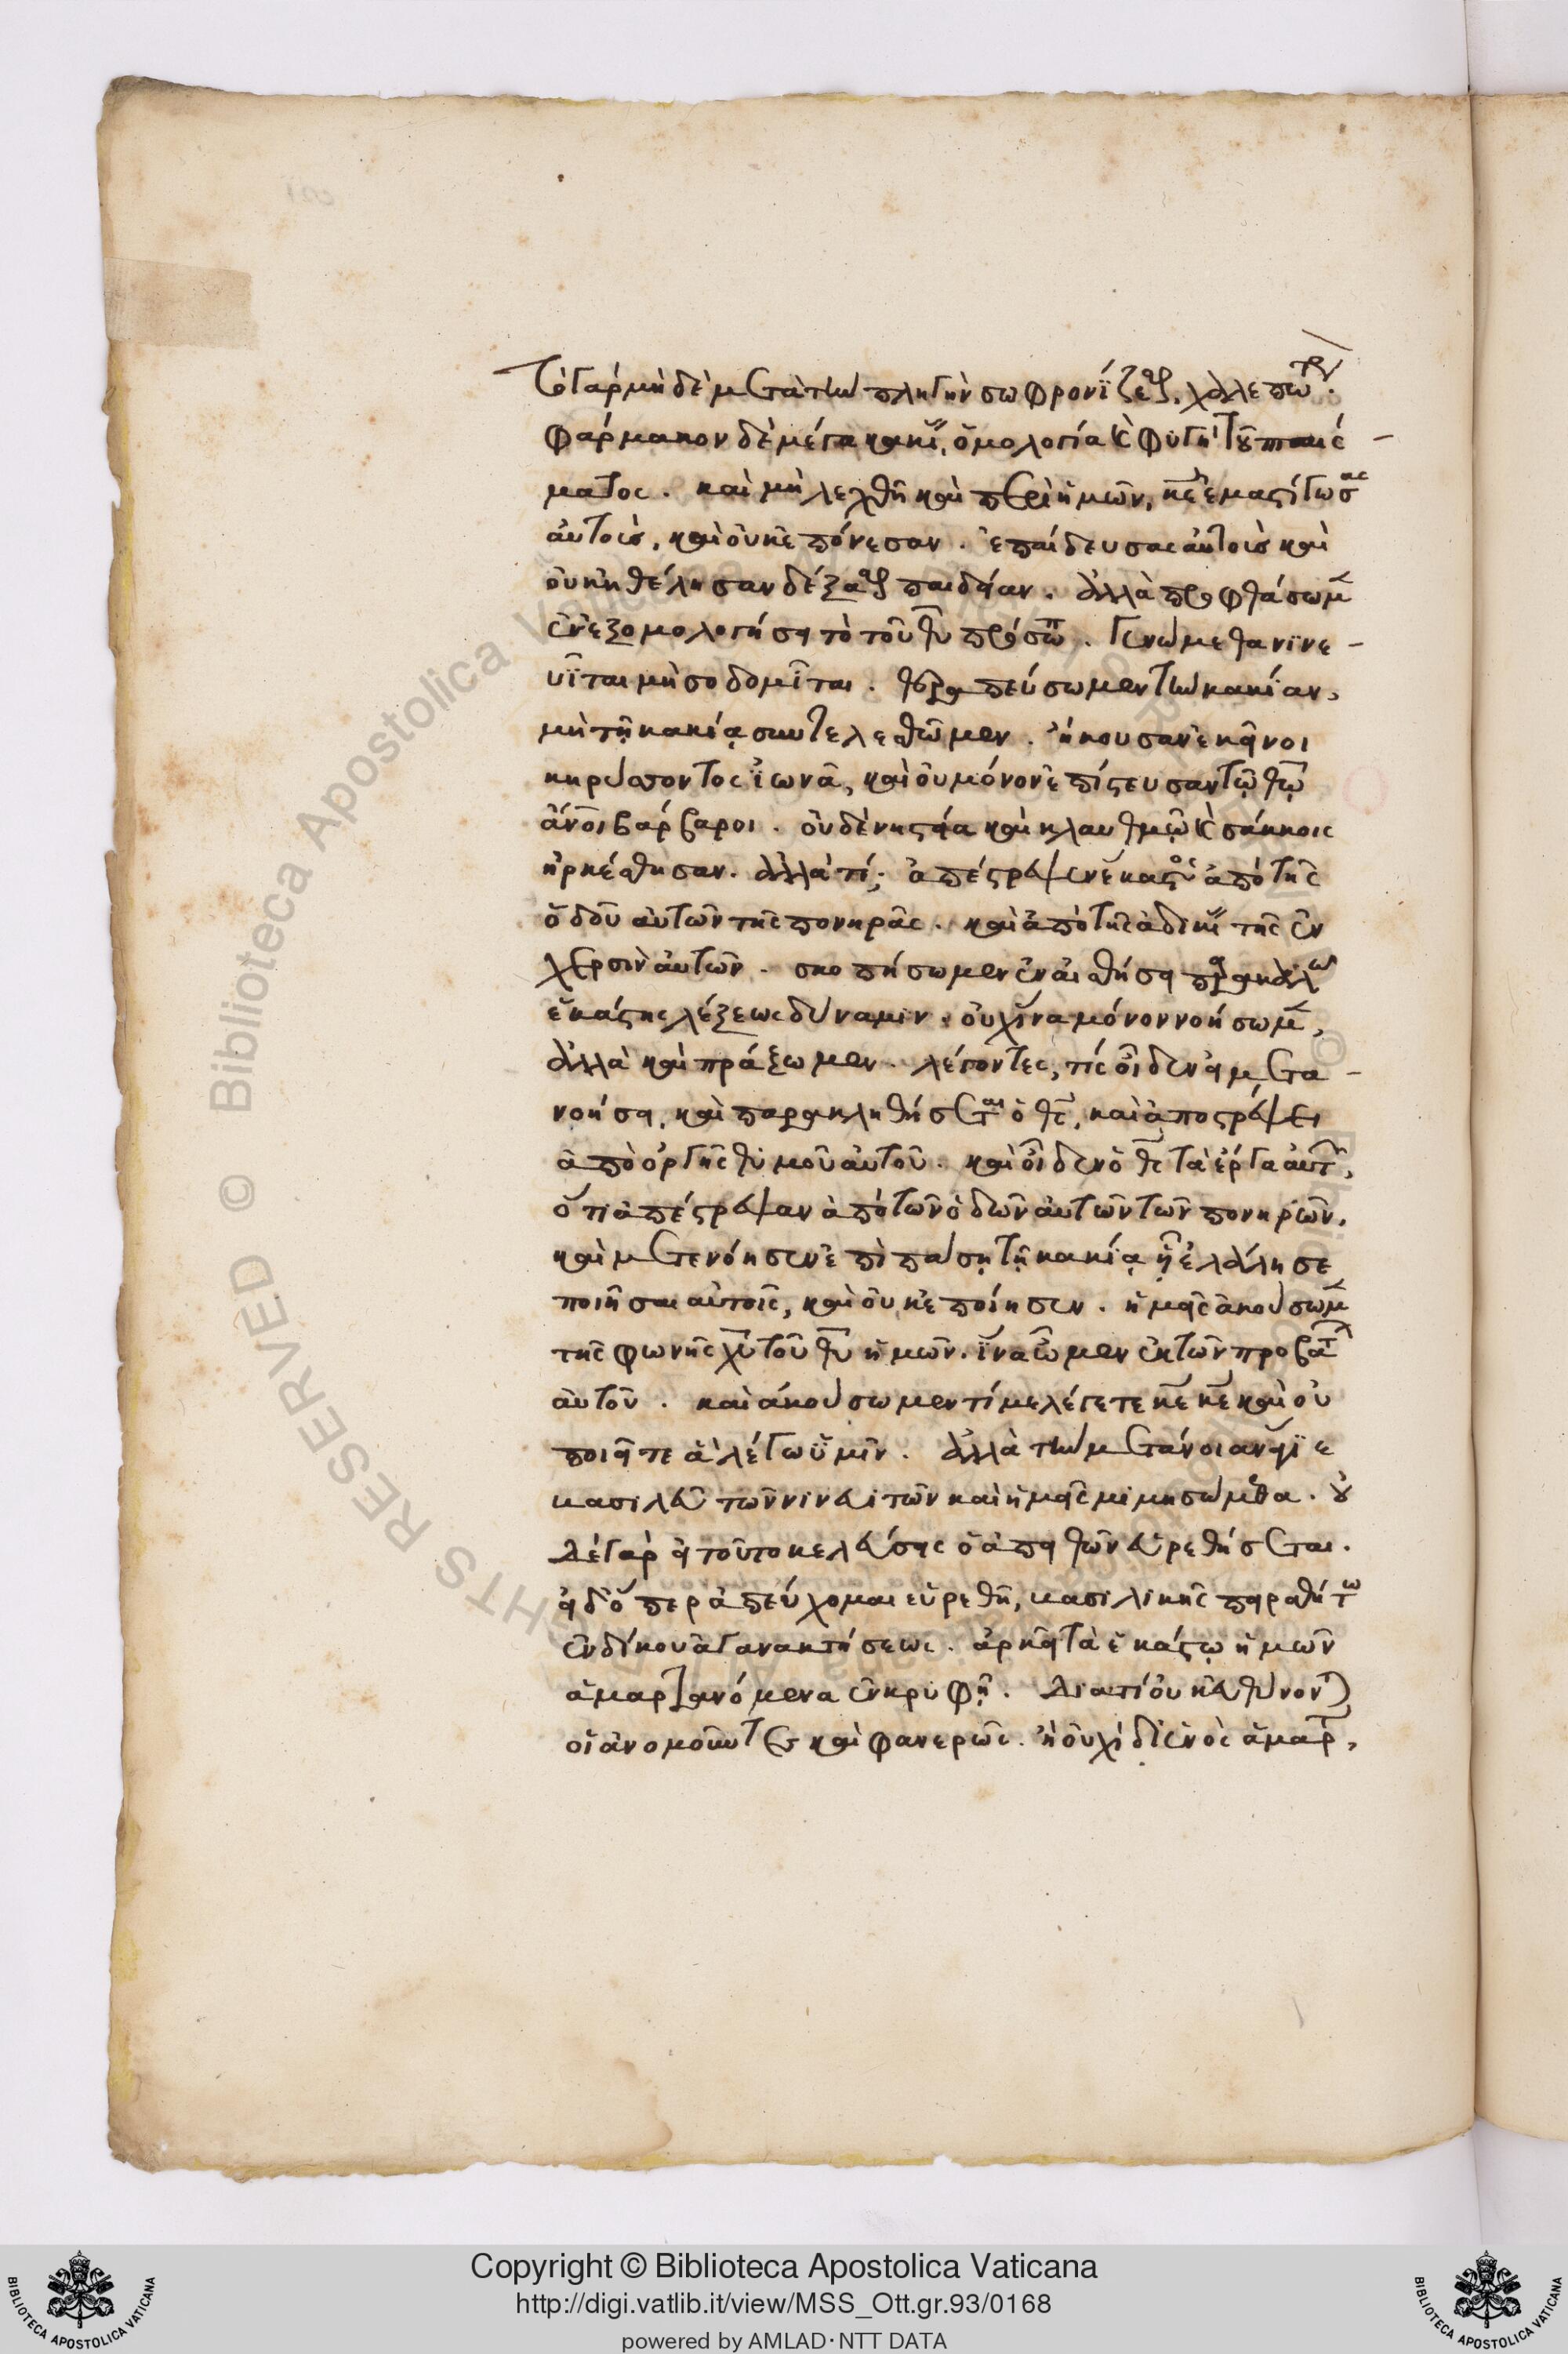 Τὸ γὰρ μὴ δὲ μετὰ τὴν πληγὴν σωφρονίζεσθαι, χαλεπώτερον.
φάρμακον δὲ μέγα κακίας, ὁμολογία κ φυγὴ τοῦ πταισ
ματος. καὶ μὴ λεχθῆ καὶ περὶ ἡμῶν, κε ἐμαστίγωσας
αὐτοὺς, καὶ οὐκ ἐπόνεσαν. ἐπαίδευσας αὐτοὺς καὶ
οὐκ ἠθέλησαν δέξασθαι παιδείαν. ἀλλὰ προφθάσωμεν
ἐν ἐξομολογήσει τὸ τοῦ θυ πρόσωπον. γενώμεθα νινε
υῖται μὴ σοδομῖται. θεραπεύσωμεν τὴν κακίαν,
μὴ τῆ κακία συντελεσθῶμεν. ἤκουσαν ἐκεῖνοι
κηρύσσοντος ἰωνᾶ, καὶ οὐ μόνον ἐπίστευσαν τῷ θῷ
ἄνοι βάρβαροι. οὐδὲ νηστεία καὶ κλαυθμῷ κ σάκκοις
ἠρκέσθησαν. ἀλλὰ τί; ἀπέστρεψεν ἕκαστος ἀπὸ τῆς
ὁδοῦ αὐτῶν τῆς πονηρᾶς. καὶ ἀπὸ τῆς ἀδικίας τῆς ἐν
χερσὶν αὐτῶν. σκοπήσωμεν ἐν αἰσθήσει παρακαλῶ
ἑκάστης λέξεως δύναμιν. οὐχ ἵνα μόνον νοήσωμεν,
ἀλλὰ καὶ πράξωμεν. λέγοντες, τίς οἶδεν εἰ μετα
νοήσει, καὶ παρακληθήσεται ὁ θς, καὶ ἀποστρέψει
ἀπὸ ὀργῆς θυμοῦ αὐτοῦ. καὶ οἶδεν ὁ θς τὰ ἔργα αὐτῶν,
ὅτι ἀπέστρεψαν ἀπὸ τῶν ὁδῶν αὐτῶν τῶν πονηρῶν.
καὶ μετενόησεν ἐπὶ πάση τῆ κακία ἧ ἐλάλησε
ποιῆσαι αὐτοῖς, καὶ οὐκ ἐποίησεν. ἡμεῖς ἀκούσωμεν
τῆς φωνῆς χυ τοῦ θυ ἡμῶν. ἵνα ὦμεν ἐκ τῶν προβάτων
αὐτοῦ. καὶ ἀκούσωμεν τί με λέγετε κε κε καὶ οὐ
ποιεῖτε ἃ λέγω ὑμῖν. ἀλλὰ τὴν μετάνοιαν εἰ ἱε
βασιλεῦ τῶν νινευιτῶν καὶ ἡμεῖς μιμησώμεθα. οὐ
δὲ γὰρ εἰ τοῦτο κελεύσεις ὁ ἀπειθῶν εὑρεθήσεται.
εἰ δ' ὅπερ ἀπεύχομαι εὑρεθῆ, βασιλικῆς πειραθήτω
ἐνδίκου ἀγανακτήσεως. ἀρκεῖ τὰ ἑκάστῳ ἡμῶν
ἁμαρτανόμενα ἐν κρυφῆ. διατί οὐκ εὐθύνονται
οἱ ἀνομοῦντες καὶ φανερῶς. ἢ οὐχὶ δι' ἑνὸς ἁμαρτ,
Copyright © Biblioteca Apostolica Vaticana
http://digi.vatlib.it/view/MSS_Ott.gr.93/0168
powered by AMLAD·NTT DATA